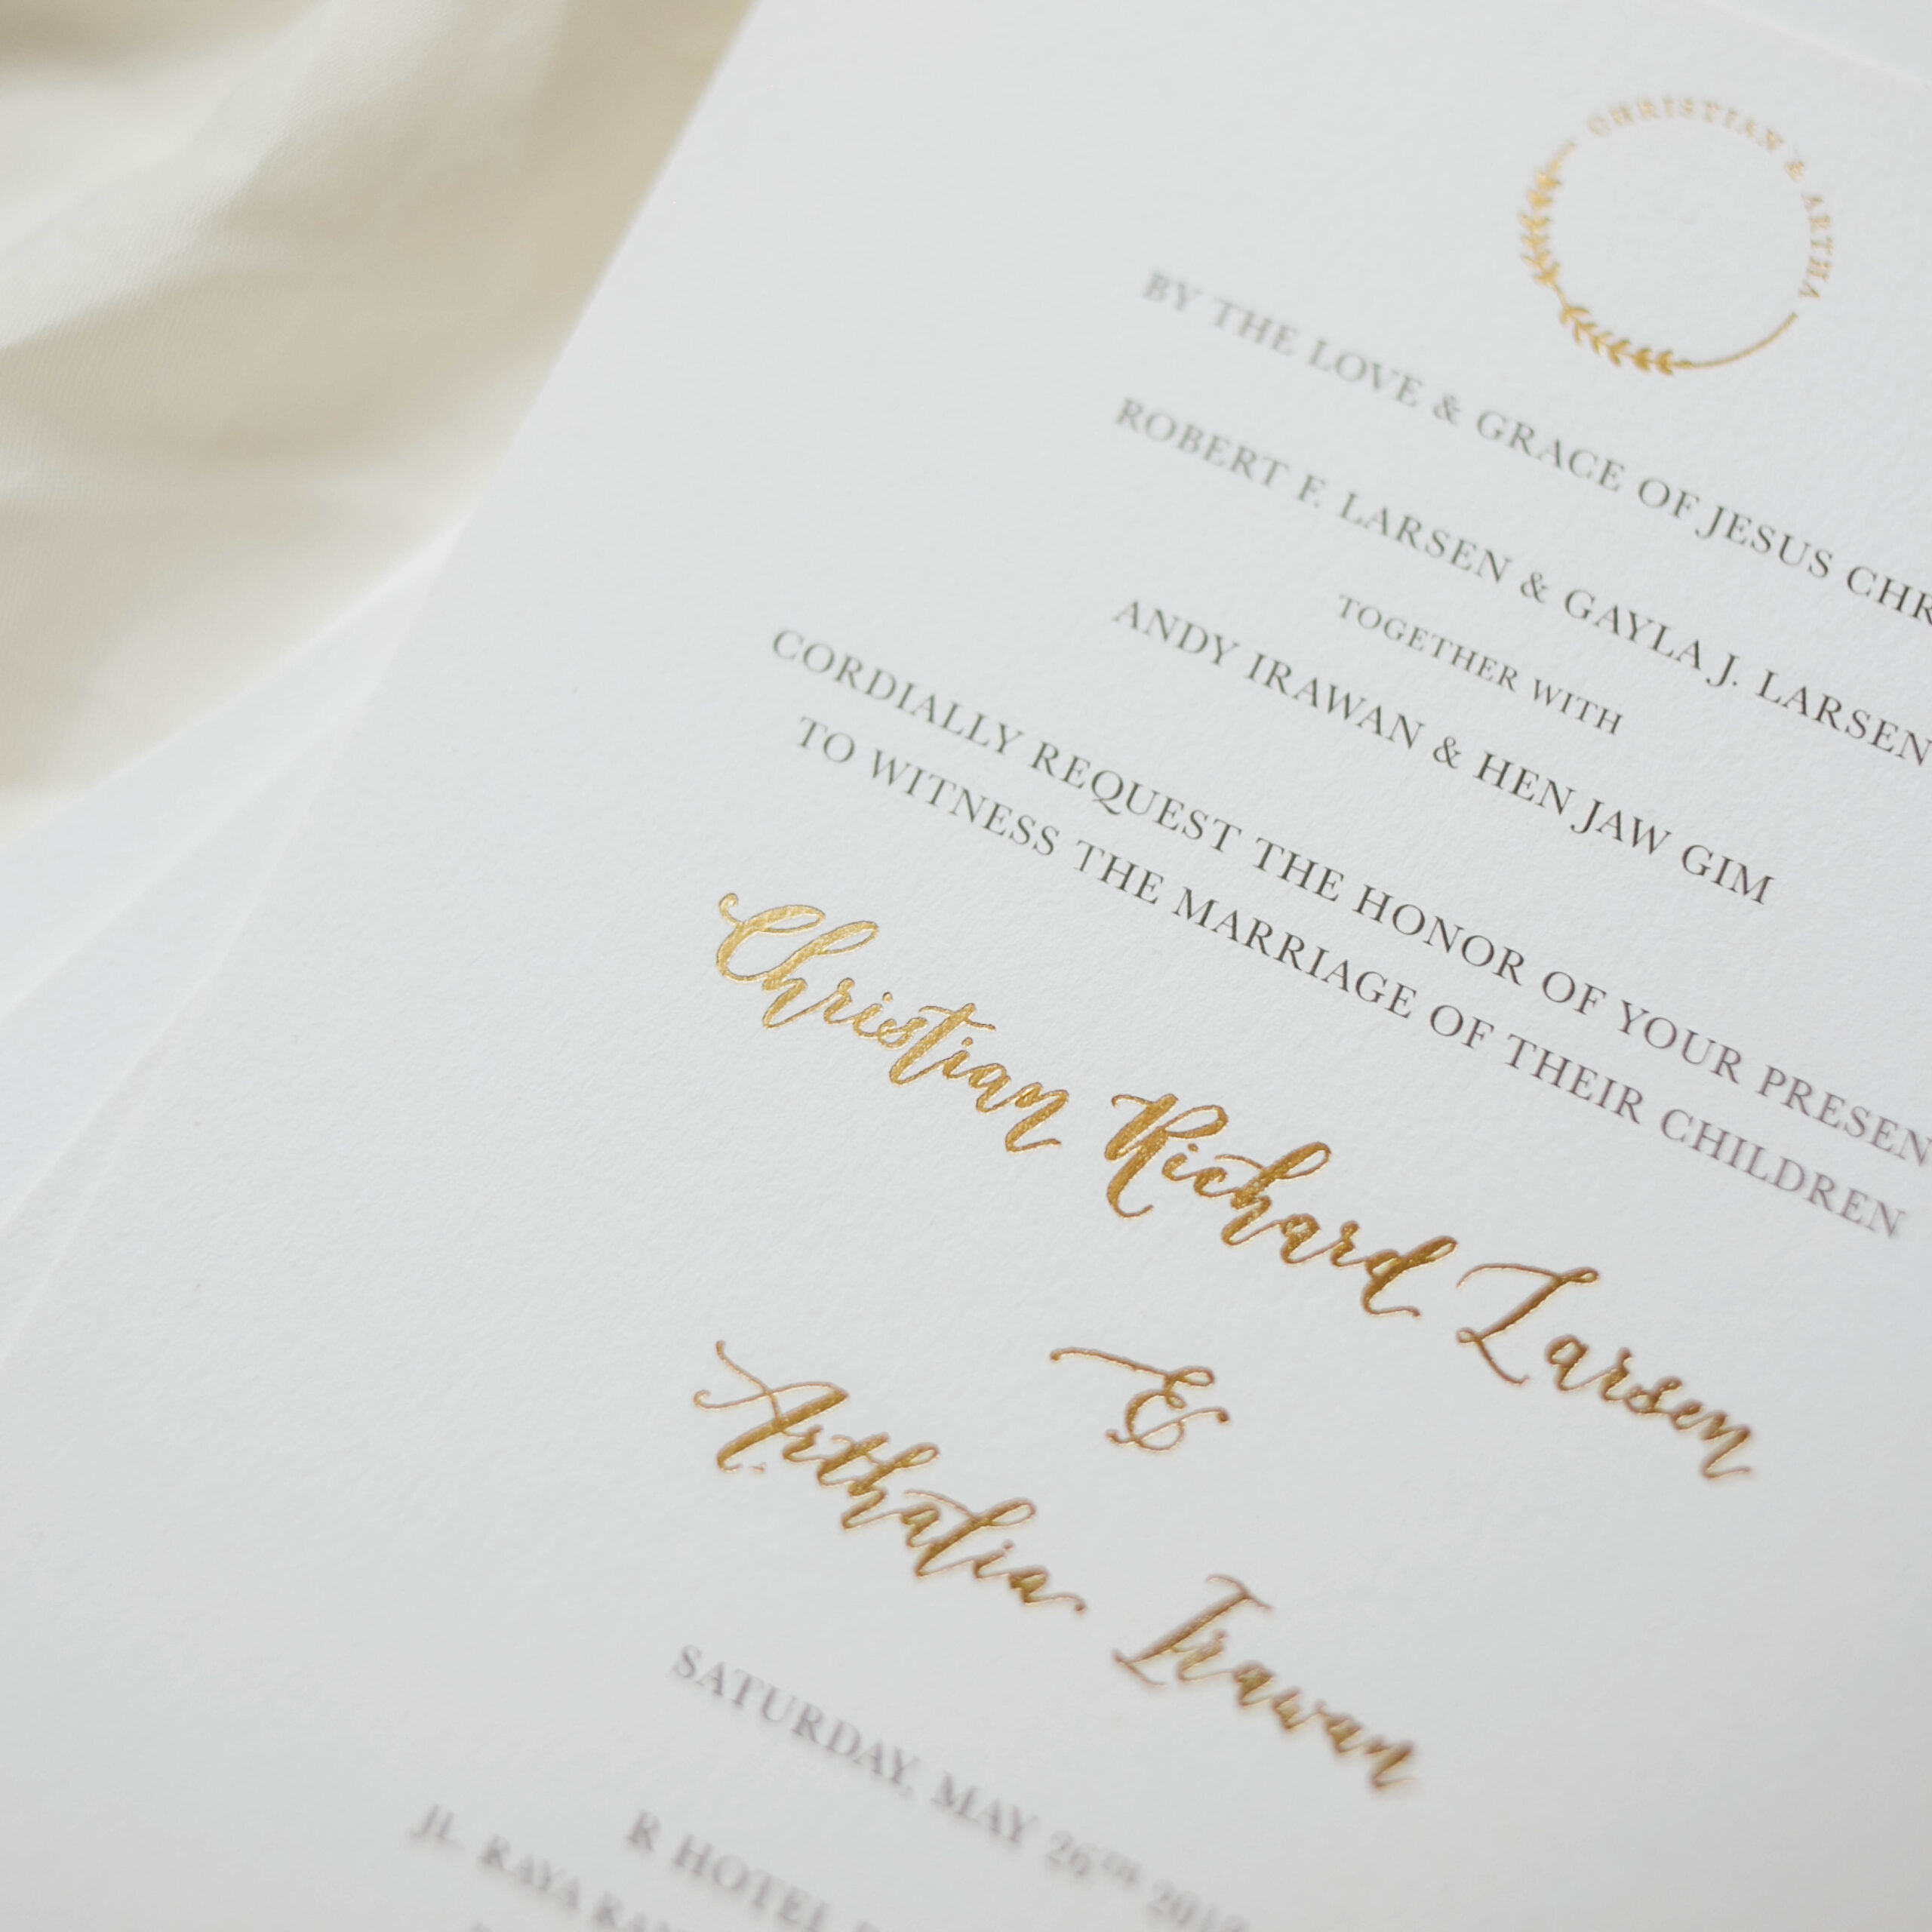 CHRISTIAN & ARTHA
BY THE LOVE & GRACE OF JESUS CHR
ROBERT F. LARSEN & GAYLA J. LARSEN
TOGETHER WITH
ANDY IRAWAN & HEN JAW GIM
CORDIALLY REQUEST THE HONOR OF YOUR PRESEN
TO WITNESS THE MARRIAGE OF THEIR CHILDREN
Christian Richard Larsen
&
Arthalia Irawan
SATURDAY, MAY 26TH 2018
R HOTEL
JL. RAYA